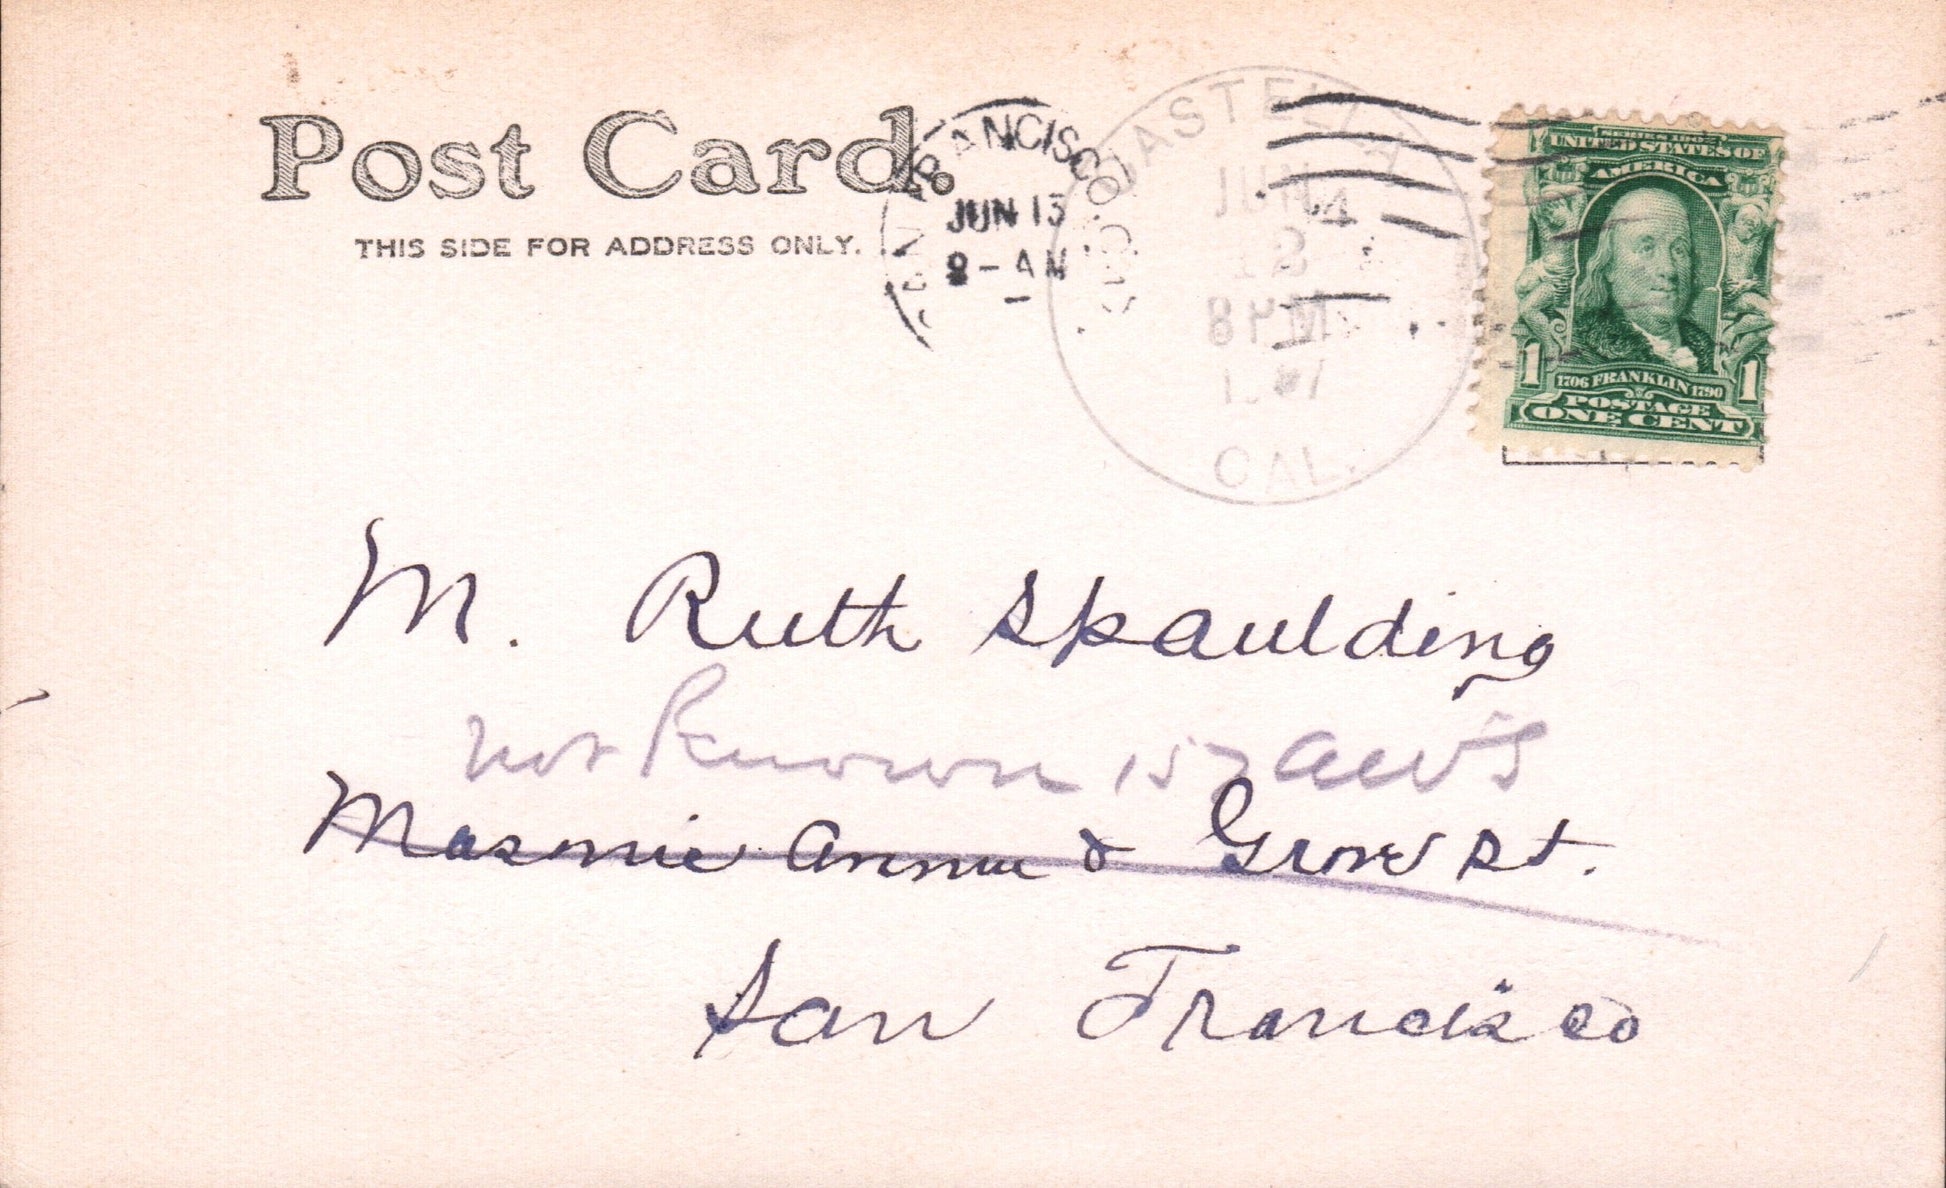 Post Card.
THIS SIDE FOR ADDRESS ONLY.
SAN FRANCISCO, CAL.
JUN 13
8 - AM
CASTELLA
JUN
12
8 PM
CAL.
SERIES 1902
UNITED STATES OF
AMERICA
1 1
1706 FRANKLIN 1790
POSTAGE
ONE CENT
M. Ruth Spaulding
not Known 157
Masonic Avenue & Grove St.
San Francisco